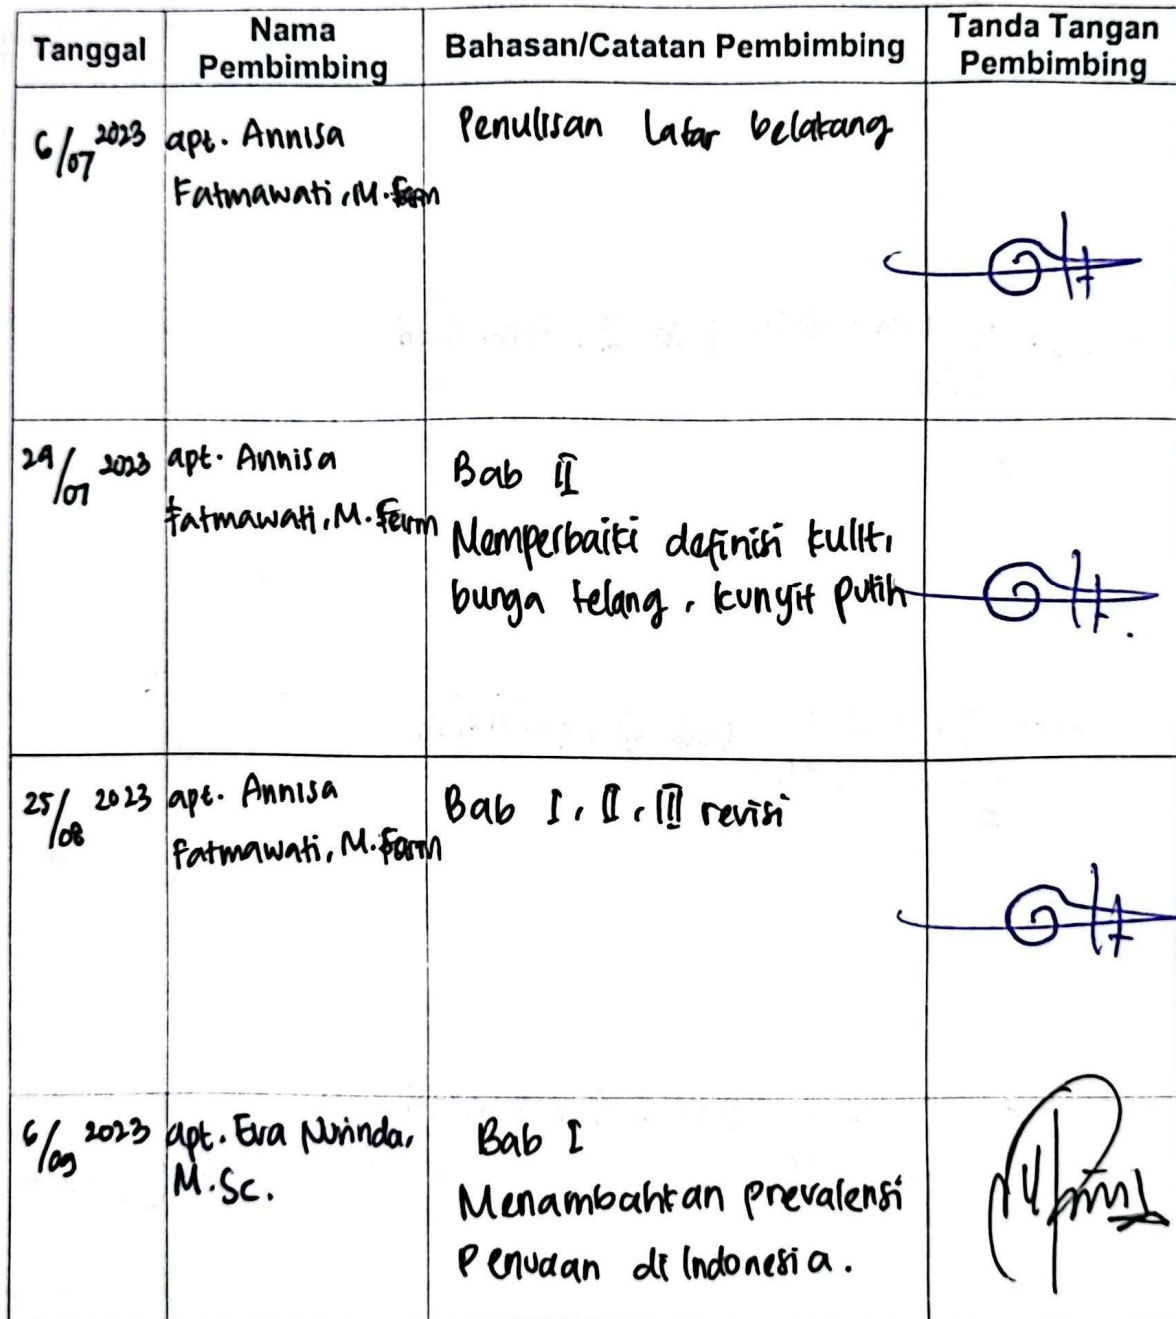 Tanggal
Nama
Pembimbing
Bahasan/Catatan Pembimbing
Tanda Tangan
Pembimbing
6/07 2023
apt. Annisa
Fatmawati, M. Farm
Penulisan latar belakang
29/07 2023
apt. Annisa
Fatmawati, M. Farm
Bab II
Memperbaiki definisi kulit,
bunga telang, kunyit putih
25/08 2023
apt. Annisa
Fatmawati, M. Farm
Bab I, II, III revisi
6/09 2023
apt. Eva Nurinda,
M.Sc.
Bab I
Menambahkan prevalensi
Penuaan di Indonesia.